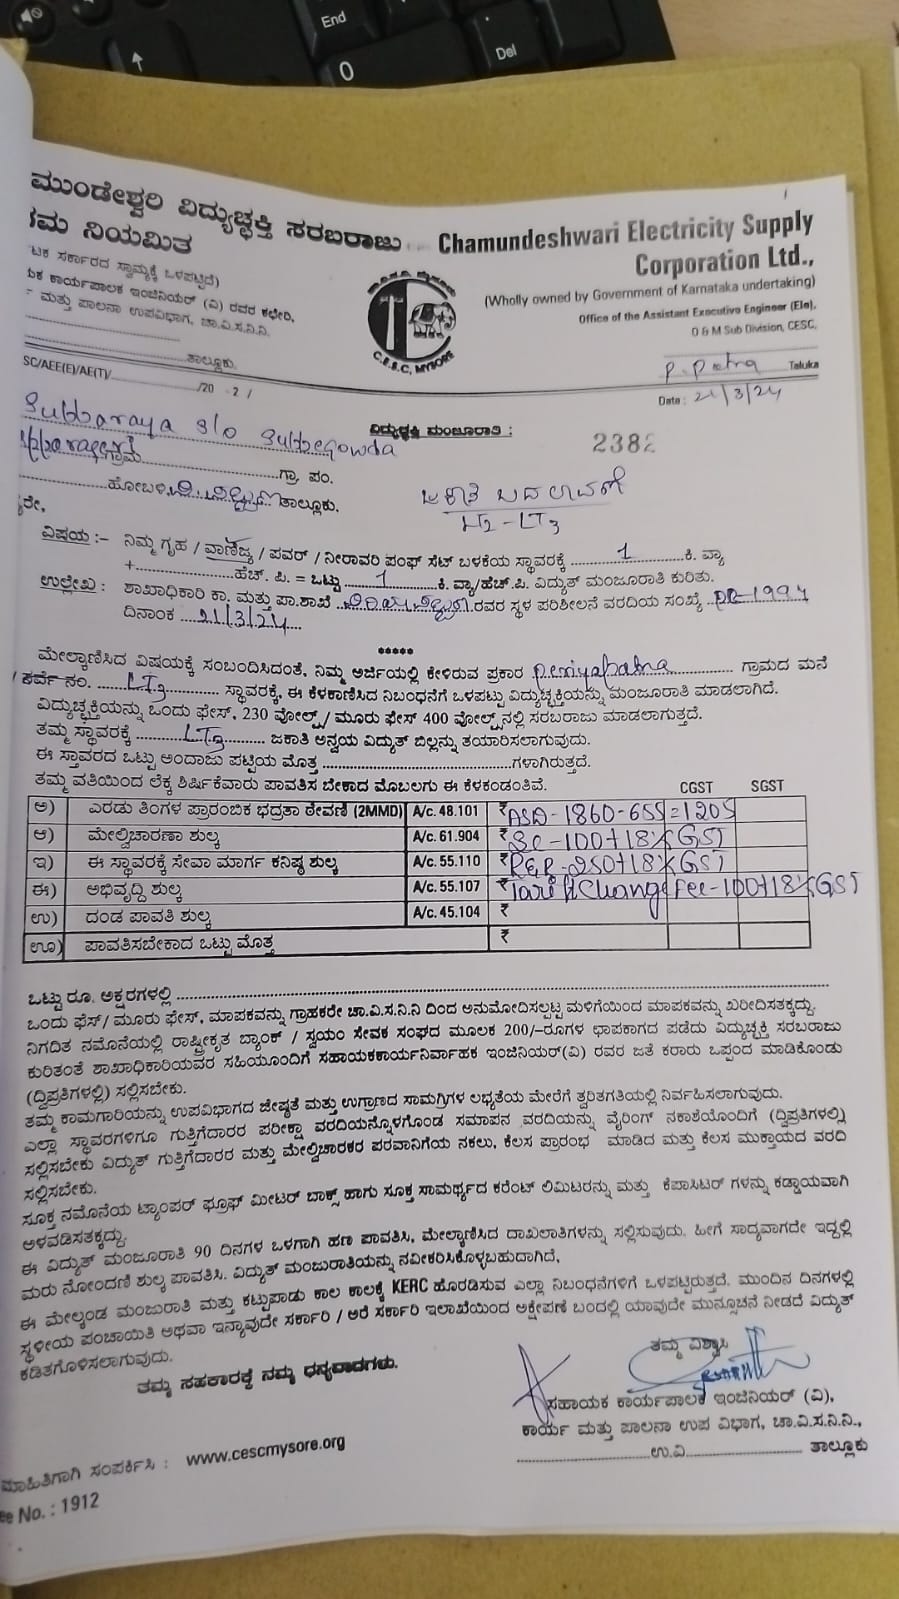 End
Del
0
ಮುಂಡೇಶ್ವರಿ ವಿದ್ಯುಚ್ಛಕ್ತಿ ಸರಬರಾಜು
ನಿಯಮಿತ
Chamundeshwari Electricity Supply
Corporation Ltd.,
(Wholly owned by Government of Karnataka undertaking)
Office of the Assistant Executive Engineer (Ele),
O & M Sub Division, CESC,
ಸರ್ಕಾರದ ಸ್ವಾಮ್ಯಕ್ಕೆ ಒಳಪಟ್ಟಿದೆ)
ಕಾರ್ಯಪಾಲಕ ಇಂಜಿನಿಯರ್ (ವಿ) ರವರ ಕಛೇರಿ,
ಮತ್ತು ಪಾಲನಾ ಉಪವಿಭಾಗ, ಚಾ.ವಿ.ಸ.ನಿ.ನಿ.
C.E.S.C, MYSORE
ತಾಲ್ಲೂಕು.
P. Patna Taluka
SC/AEE(E)/AE(T)/ /20 -2 /
Date : 21/3/24
Subbaraya S/o Subbegowda
ವಿದ್ಯುಚ್ಛಕ್ತಿ ಮಂಜೂರಾತಿ :
2382
ಗ್ರಾಮ ಗ್ರಾ. ಪಂ.
ಹೋಬಳಿ ತಾಲ್ಲೂಕು.
ಜಕಾತಿ ಬದಲಾವಣೆ
LT3
ವಿಷಯ :- ನಿಮ್ಮ ಗೃಹ / ವಾಣಿಜ್ಯ / ಪವರ್ / ನೀರಾವರಿ ಪಂಫ್ ಸೆಟ್ ಬಳಕೆಯ ಸ್ಥಾವರಕ್ಕೆ 1 ಕಿ. ವ್ಯಾ
+ ಹೆಚ್. ಪಿ. = ಒಟ್ಟು 1 ಕಿ. ವ್ಯಾ/ಹೆಚ್.ಪಿ. ವಿದ್ಯುತ್ ಮಂಜೂರಾತಿ ಕುರಿತು.
ಉಲ್ಲೇಖ : ಶಾಖಾಧಿಕಾರಿ ಕಾ. ಮತ್ತು ಪಾ.ಶಾಖೆ ರವರ ಸ್ಥಳ ಪರಿಶೀಲನೆ ವರದಿಯ ಸಂಖ್ಯೆ
ದಿನಾಂಕ 21/3/24
*****
ಮೇಲ್ಕಾಣಿಸಿದ ವಿಷಯಕ್ಕೆ ಸಂಬಂದಿಸಿದಂತೆ, ನಿಮ್ಮ ಅರ್ಜಿಯಲ್ಲಿ ಕೇಳಿರುವ ಪ್ರಕಾರ Periyapatna ಗ್ರಾಮದ ಮನೆ
/ ಸರ್ವೆ ನಂ. LT3 ಸ್ಥಾವರಕ್ಕೆ, ಈ ಕೆಳಕಾಣಿಸಿದ ನಿಬಂಧನೆಗೆ ಒಳಪಟ್ಟು ವಿದ್ಯುಚ್ಛಕ್ತಿಯನ್ನು ಮಂಜೂರಾತಿ ಮಾಡಲಾಗಿದೆ.
ವಿದ್ಯುಚ್ಛಕ್ತಿಯನ್ನು ಒಂದು ಫೇಸ್, 230 ವೋಲ್ಟ್ಸ್/ ಮೂರು ಫೇಸ್ 400 ವೋಲ್ಟ್ಸ್‌ನಲ್ಲಿ ಸರಬರಾಜು ಮಾಡಲಾಗುತ್ತದೆ.
ತಮ್ಮ ಸ್ಥಾವರಕ್ಕೆ LT3 ಜಕಾತಿ ಅನ್ವಯ ವಿದ್ಯುತ್ ಬಿಲ್ಲನ್ನು ತಯಾರಿಸಲಾಗುವುದು.
ಈ ಸ್ತಾವರದ ಒಟ್ಟು ಅಂದಾಜು ಪಟ್ಟಿಯ ಮೊತ್ತ ಗಳಾಗಿರುತ್ತದೆ.
ತಮ್ಮ ವತಿಯಿಂದ ಲೆಕ್ಕ ಶಿರ್ಷಿಕೆವಾರು ಪಾವತಿಸ ಬೇಕಾದ ಮೊಬಲಗು ಈ ಕೆಳಕಂಡಂತಿವೆ. CGST SGST
ಅ) ಎರಡು ತಿಂಗಳ ಪ್ರಾರಂಬಿಕ ಭದ್ರತಾ ಠೇವಣಿ (2MMD) A/c. 48.101 ₹ ASD-1860-655=1205
ಆ) ಮೇಲ್ವಿಚಾರಣಾ ಶುಲ್ಕ A/c. 61.904 ₹ SC-100+18% GST
ಇ) ಈ ಸ್ಥಾವರಕ್ಕೆ ಸೇವಾ ಮಾರ್ಗ ಕನಿಷ್ಠ ಶುಲ್ಕ A/c. 55.110 ₹ R&R-250+18% GST
ಈ) ಅಭಿವೃದ್ದಿ ಶುಲ್ಕ A/c. 55.107 ₹ Tariff Change fee-100+18% GST
ಉ) ದಂಡ ಪಾವತಿ ಶುಲ್ಕ A/c. 45.104 ₹
ಊ) ಪಾವತಿಸಬೇಕಾದ ಒಟ್ಟು ಮೊತ್ತ ₹
ಒಟ್ಟು ರೂ. ಅಕ್ಷರಗಳಲ್ಲಿ
ಒಂದು ಫೆಸ್/ ಮೂರು ಫೇಸ್, ಮಾಪಕವನ್ನು ಗ್ರಾಹಕರೇ ಚಾ.ವಿ.ಸ.ನಿ.ನಿ ದಿಂದ ಅನುಮೋದಿಸಲ್ಪಟ್ಟ ಮಳಿಗೆಯಿಂದ ಮಾಪಕವನ್ನು ಖರೀದಿಸತಕ್ಕದ್ದು.
ನಿಗದಿತ ನಮೊನೆಯಲ್ಲಿ ರಾಷ್ಟ್ರೀಕೃತ ಬ್ಯಾಂಕ್ / ಸ್ವಯಂ ಸೇವಕ ಸಂಘದ ಮೂಲಕ 200/-ರೂಗಳ ಛಾಪಕಾಗದ ಪಡೆದು ವಿದ್ಯುಚ್ಛಕ್ತಿ ಸರಬರಾಜು
ಕುರಿತಂತೆ ಶಾಖಾಧಿಕಾರಿಯವರ ಸಹಿಯೂಂದಿಗೆ ಸಹಾಯಕಕಾರ್ಯನಿರ್ವಾಹಕ ಇಂಜಿನಿಯರ್(ವಿ) ರವರ ಜತೆ ಕರಾರು ಒಪ್ಪಂದ ಮಾಡಿಕೊಂಡು
(ದ್ವಿಪ್ರತಿಗಳಲ್ಲಿ) ಸಲ್ಲಿಸಬೇಕು.
ತಮ್ಮ ಕಾಮಗಾರಿಯನ್ನು ಉಪವಿಭಾಗದ ಜೇಷ್ಠತೆ ಮತ್ತು ಉಗ್ರಾಣದ ಸಾಮಗ್ರಿಗಳ ಲಭ್ಯತೆಯ ಮೇರೆಗೆ ತ್ವರಿತಗತಿಯಲ್ಲಿ ನಿರ್ವಹಿಸಲಾಗುವುದು.
ಎಲ್ಲಾ ಸ್ಥಾವರಗಳಿಗೂ ಗುತ್ತಿಗೆದಾರರ ಪರೀಕ್ಷಾ ವರದಿಯನ್ನೊಳಗೊಂಡ ಸಮಾಪನ ವರದಿಯನ್ನು ವೈರಿಂಗ್ ನಕಾಶೆಯೊಂದಿಗೆ (ದ್ವಿಪ್ರತಿಗಳಲ್ಲಿ)
ಸಲ್ಲಿಸಬೇಕು ವಿದ್ಯುತ್ ಗುತ್ತಿಗೆದಾರರ ಮತ್ತು ಮೇಲ್ವಿಚಾರಕರ ಪರವಾನಿಗೆಯ ನಕಲು, ಕೆಲಸ ಪ್ರಾರಂಭ ಮಾಡಿದ ಮತ್ತು ಕೆಲಸ ಮುಕ್ತಾಯದ ವರದಿ
ಸಲ್ಲಿಸಬೇಕು.
ಸೂಕ್ತ ನಮೊನೆಯ ಟ್ಯಾಂಪರ್ ಫ್ರೂಫ್ ಮೀಟರ್ ಬಾಕ್ಸ್ ಹಾಗು ಸೂಕ್ತ ಸಾಮರ್ಥ್ಯದ ಕರೆಂಟ್ ಲಿಮಿಟರನ್ನು ಮತ್ತು ಕೆಪಾಸಿಟರ್ ಗಳನ್ನು ಕಡ್ಡಾಯವಾಗಿ
ಅಳವಡಿಸತಕ್ಕದ್ದು.
ಈ ವಿದ್ಯುತ್ ಮಂಜೂರಾತಿ 90 ದಿನಗಳ ಒಳಗಾಗಿ ಹಣ ಪಾವತಿಸಿ, ಮೇಲ್ಕಾಣಿಸಿದ ದಾಖಲಾತಿಗಳನ್ನು ಸಲ್ಲಿಸುವುದು. ಹೀಗೆ ಸಾದ್ಯವಾಗದೇ ಇದ್ದಲ್ಲಿ
ಮರು ನೋಂದಣಿ ಶುಲ್ಕ ಪಾವತಿಸಿ. ವಿದ್ಯುತ್ ಮಂಜುರಾತಿಯನ್ನು ನವೀಕರಿಸಿಕೊಳ್ಳಬಹುದಾಗಿದೆ,
ಈ ಮೇಲ್ಕಂಡ ಮಂಜುರಾತಿ ಮತ್ತು ಕಟ್ಟುಪಾಡು ಕಾಲ ಕಾಲಕ್ಕೆ KERC ಹೊರಡಿಸುವ ಎಲ್ಲಾ ನಿಬಂಧನೆಗಳಿಗೆ ಒಳಪಟ್ಟಿರುತ್ತದೆ. ಮುಂದಿನ ದಿನಗಳಲ್ಲಿ
ಸ್ಥಳೀಯ ಪಂಚಾಯಿತಿ ಅಥವಾ ಇನ್ಯಾವುದೇ ಸರ್ಕಾರಿ / ಅರೆ ಸರ್ಕಾರಿ ಇಲಾಖೆಯಿಂದ ಅಕ್ಷೇಪಣೆ ಬಂದಲ್ಲಿ ಯಾವುದೇ ಮುನ್ಸೂಚನೆ ನೀಡದೆ ವಿದ್ಯುತ್
ಕಡಿತಗೊಳಿಸಲಾಗುವುದು.
ತಮ್ಮ ಸಹಕಾರಕ್ಕೆ ನಮ್ಮ ಧನ್ಯವಾದಗಳು.
ತಮ್ಮ ವಿಶ್ವಾಸಿ
ಸಹಾಯಕ ಕಾರ್ಯಪಾಲಕ ಇಂಜಿನಿಯರ್ (ವಿ),
ಕಾರ್ಯ ಮತ್ತು ಪಾಲನಾ ಉಪ ವಿಭಾಗ, ಚಾ.ವಿ.ಸ.ನಿ.ನಿ.,
ಉ.ವಿ ತಾಲ್ಲೂಕು
ಮಾಹಿತಿಗಾಗಿ ಸಂಪರ್ಕಿಸಿ : www.cescmysore.org
ee No. : 1912